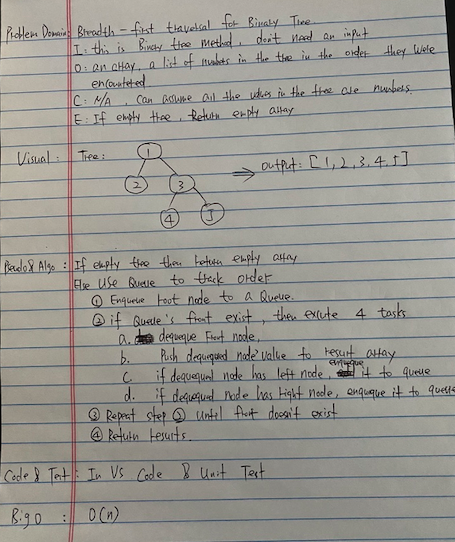 Problem Domain: Breadth-first traversal for Binary Tree
I: this is Binary tree method, don't need an input
O: an array, a list of numbers in the tree in the order they were
encountered
C: N/A, Can assume all the values in the tree are numbers.
E: If empty tree, Return empty array
Visual: Tree: 1
2 3 ⇒ output: [1, 2, 3, 4, 5]
4 5
Pseudo & Algo: If empty tree then return empty array
Else Use Queue to track order
① Enqueue root node to a Queue.
② if Queue's front exist, then excute 4 tasks
a. dequeque Front node,
b. Push dequequed node' value to result array
c. if dequequed node has left node, enqueque it to queue
d. if dequequed node has right node, enqueque it to queue
③ Repeat step ② until front doesn't exist
④ Return results.
Code & Test: In VS Code & Unit Test
Big O : O(n)